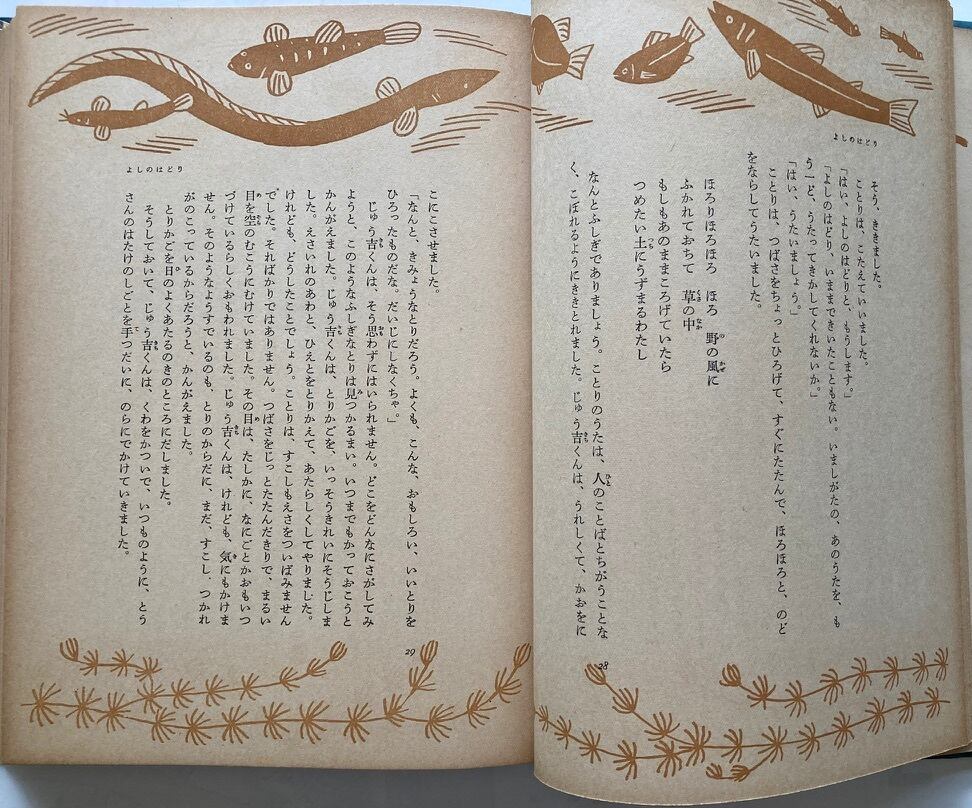 よしのはどり
そう、ききました。
ことりは、こたえていいました。
「はい、よしのはどりと、もうします。」
「よしのはどり、いままできいたこともない。いましがたの、あのうたを、も
う一ど、うたってきかしてくれないか。」
「はい、うたいましょう。」
ことりは、つばさをちょっとひろげて、すぐにたたんで、ほろほろと、のど
をならしてうたいました。
ほろりほろほろ　ほろ　野の風に
ふかれておちて　草の中
もしもあのままころげていたら
つめたい土にうずまるわたし
なんとふしぎでありましょう。ことりのうたは、人のことばとちがうことな
く、こぼれるようにききとれました。じゅう吉くんは、うれしくて、かおをに
28
よしのはどり
こにこさせました。
「なんと、きみょうなとりだろう。よくも、こんな、おもしろい、いいとりを
ひろったものだな。だいじにしなくちゃ。」
じゅう吉くんは、そう思わずにはいられません。どこをどんなにさがしてみ
ようと、このようなふしぎなとりは見つかるまい。いつまでもかっておこうと
かんがえました。じゅう吉くんは、とりかごを、いっそうきれいにそうじしま
した。えさいれのあわと、ひえとをとりかえて、あたらしくしてやりました。
けれども、どうしたことでしょう。ことりは、すこしもえさをついばみません
でした。そればかりではありません。つばさをじっとたたんだきりで、まるい
目を空のむこうにむけていました。その目は、たしかに、なにごとかおもいつ
づけているらしくおもわれました。じゅう吉くんは、けれども、気にもかけま
せん。そのようなようすでいるのも、とりのからだに、まだ、すこし、つかれ
がのこっているからだろうと、かんがえました。
とりかごを日のよくあたるのきのところにだしました。
そうしておいて、じゅう吉くんは、くわをかついで、いつものように、とう
さんのはたけのしごとを手つだいに、のらにでかけていきました。
29